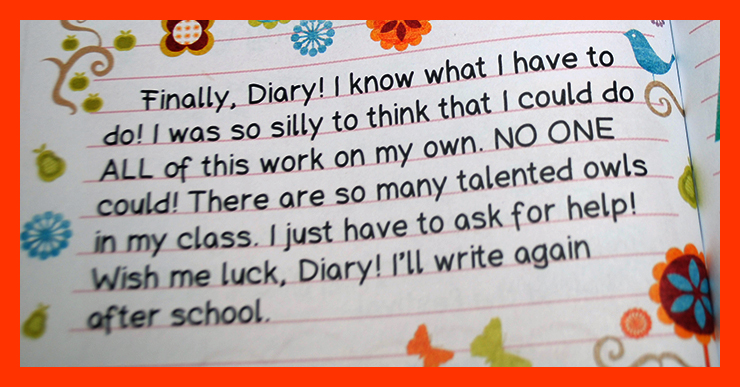 Finally, Diary! I know what I have to
do! I was so silly to think that I could do
ALL of this work on my own. NO ONE
could! There are so many talented owls
in my class. I just have to ask for help!
Wish me luck, Diary! I'll write again
after school.